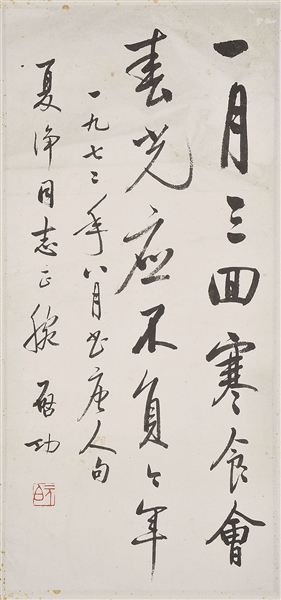 一月三回寒食會
春光应不負今年
一九七二年八月书唐人句
夏淨同志正腕 启功